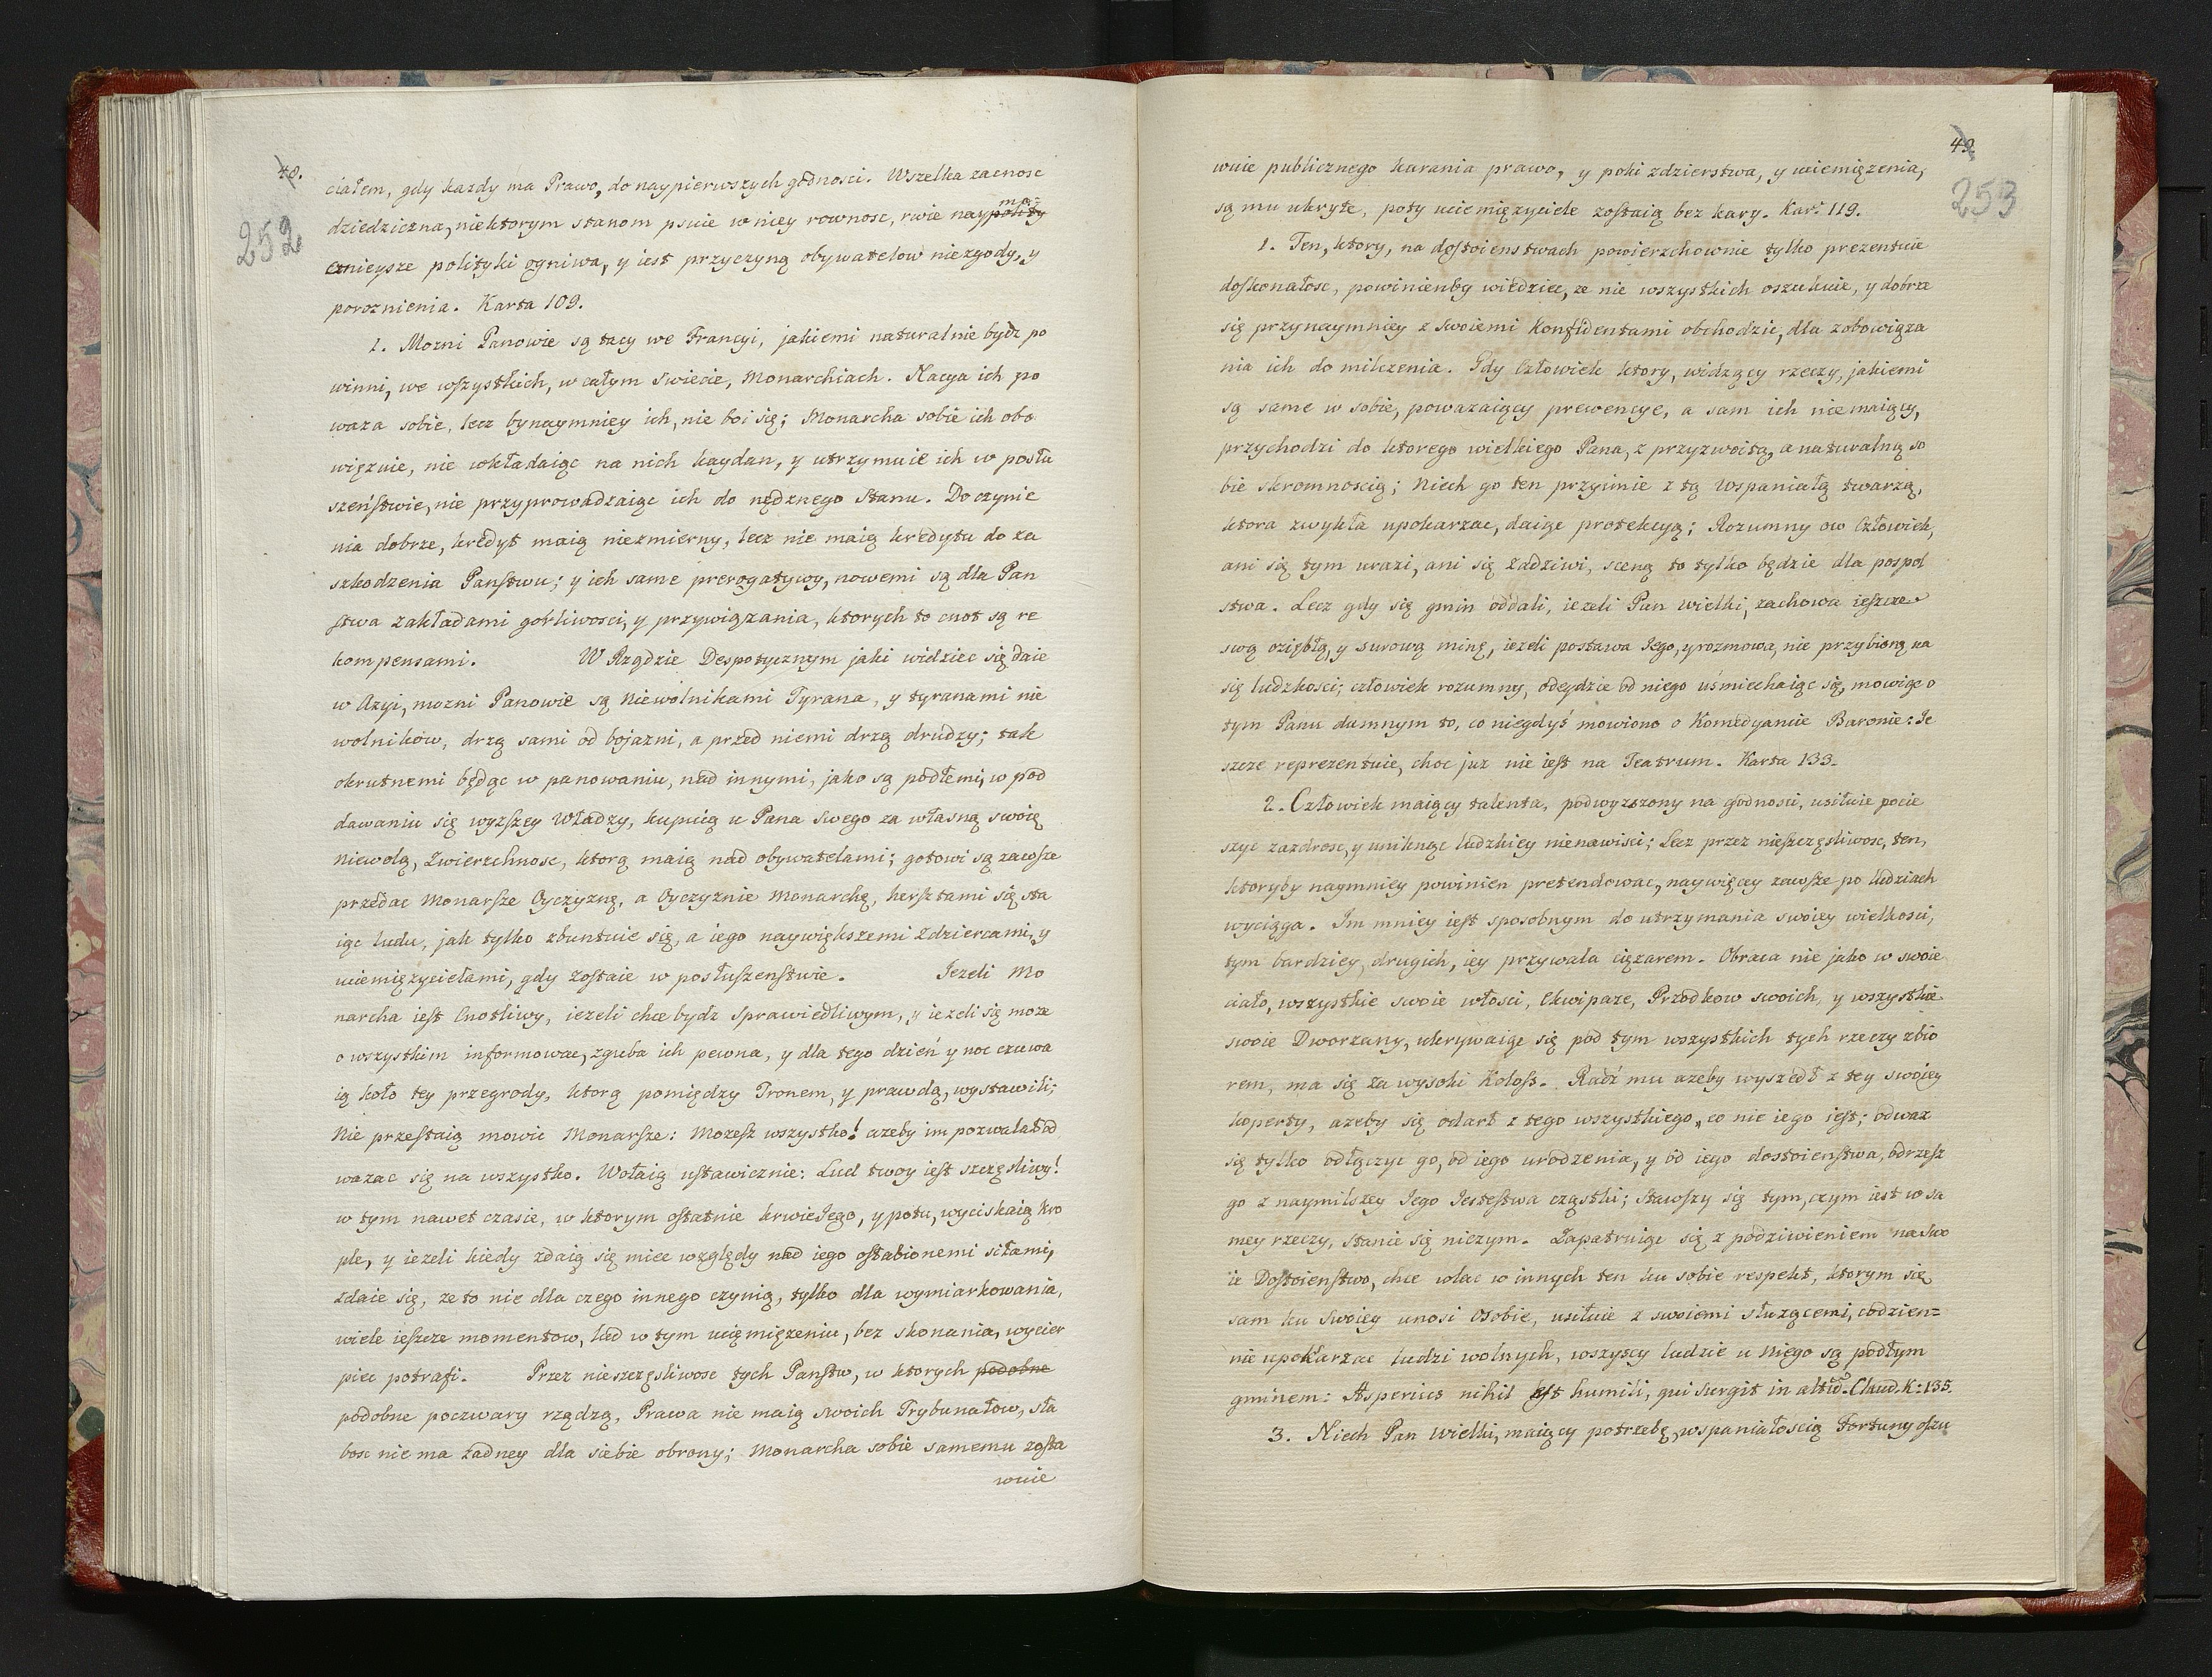 48.
252
ciałem, gdy kazdy ma Prawo, do naypierwszych godnosci. Wszelka zacnosc
dziedziczna, niektorym stanom psuie w niey rownosc, rwie naypolity
mo
cznieysze polityki ogniwa, y iest przyczyną obywatelow niezgody, y
poroznienia. Karta 109.
1. Mozni Panowie są tacy we Francyi, jakiemi naturalnie bydz po
winni, we wszystkich, w całym swiecie, Monarchiach. Nacya ich po
waza sobie, lecz bynaymniey ich, nie boi się; Monarcha sobie ich obo
więzuie, nie wkładaiąc na nich kaydan, y utrzymuie ich w posłu
szeństwie, nie przyprowadzaiąc ich do nędznego stanu. Do czynie
nia dobrze, kredyt maią niezmierny, lecz nie maią kredytu do za
szkodzenia Państwu; y ich same prerogatywy, nowemi są dla Pan
stwa zakładami gorliwosci, y przywiązania, ktorych to cnot są re
kompensami. W Rządzie Despotycznym jaki widziec się daie
w Azyi, mozni Panowie są Niewolnikami Tyrana, y tyranami nie
wolników, drzą sami od bojazni, a przed niemi drzą drudzy; tak
okrutnemi będąc w panowaniu, nad innymi, jako są podłemi, w pod
dawaniu się wyzszey Władzy, kupuią u Pana swego za własną swoię
Niewolą, Zwierzchnosc, ktorą maią nad obywatelami; gotowi są zawsze
przedac Monarsze Oyczyznę, a Oyczyznie Monarchę, hersztami się sta
iąc ludu, jak tylko zbuntuie się, a iego naywiększemi Zdziercami, y
uciemięzycielami, gdy zostaie w posłuszenstwie. Jezeli Mo
narcha iest Cnotliwy, iezeli chce bydz sprawiedliwym, y iezeli się moze
o wszystkim informowac, zguba ich pewna, y dla tego dzień y noc czuwa
ią koło tey przegrody, ktorą pomiędzy Tronem, y prawdą, wystawili;
Nie przestaią mowic Monarsze: Mozesz wszystko! azeby im pozwalał od
wazac się na wszystko. Wołaią ustawicznie: Lud twoy iest szczęsliwy!
w tym nawet czasie, w ktorym ostatnie krwie Jego, y potu, wyciskaią kro
ple, y iezeli kiedy zdaią się miec względy nad iego osłabionemi siłami,
zdaie się, ze to nie dla czego innego czynią, tylko dla wymiarkowania,
wiele ieszcze momentow, lud w tym ucięmięzeniu, bez skonania, wycier
piec potrafi. Przez nieszczęsliwosc tych Państw, w ktorych podobne
podobne poczwary rządzą, Prawa nie maią swoich Trybunałow, sła
bosc nie ma zadney dla siebie obrony; Monarcha sobie samemu zosta
wuie
49.
253
wuie publicznego karania prawo, y poki zdzierstwa, y uciemięzenia,
są mu ukryte, poty uciemięzyciele zostaią bez kary. Kar: 119.
1. Ten, ktory, na dostoienstwach powierzchownie tylko prezentuie
doskonałosc, powinienby wiedziec, ze nie wszystkich oszukuie, y dobrze
się przynaymniey z swoiemi Konfidentami obchodzic, dla zobowiąza
nia ich do milczenia. Gdy Człowiek ktory, widzący rzeczy, jakiemi
są same w sobie, powazaiący prewencye, a sam ich nie maiący,
przychodzi do ktorego wielkiego Pana, z przyzwoitą, a naturalną so
bie skromnoscią; Niech go ten przyimie z tą wspaniałą twarzą,
ktora zwykła upokarzac, daiąc protekcyą; Rozumny ow Człowiek,
ani się tym urazi, ani się zadziwi, sceną to tylko będzie dla pospol
stwa. Lecz gdy się gmin oddali, iezeli Pan wielki, zachowa ieszcze
swą ozięblą, y surową minę, iezeli postawa Jego, y rozmowa, nie przybiorą na
się ludzkosci; człowiek rozumny, odeydzie od niego uśmiechaiąc się, mowiąc o
tym Panu dumnym to, co niegdyś mowiono o Komedyancie Baronie: Je
szcze reprezentuie, choc juz nie iest na Teatrum. Karta 133.
2. Człowiek maiący talenta, podwyzszony na godnosci, usiłuie pocie
szyc zazdrosc, y uniknąc ludzkiey nienawisci; Lecz przez nieszczęsliwosc, ten,
ktoryby naymniey powinien pretendowac, naywięcey zawsze po ludziach
wyciąga. Im mniey iest sposobnym do utrzymania swoiey wielkosci,
tym bardziey, drugich, iey przywala cięzarem. Obraca nie jako w swoie
ciało, wszystkie swoie włosci, Ekwipaze, Przodkow swoich, y wszystkie
swoie Dworzany, ukrywaiąc się pod tym wszystkich tych rzeczy zbio
rem, ma się za wysoki Kolosz. Radź mu azeby wyszedł z tey swoiey
koperty, azeby się odarł z tego wszystkiego, co nie iego iest; odwaz
się tylko odłączyc go, od iego urodzenia, y od iego dostoienstwa, odrzesz
go z naymilszey Jego Jestestwa cząstki; stawszy się tym, czym iest w sa
mey rzeczy, stanie się niczym. Zapatruiąc się z podziwieniem na swo
ie Dostoienstwo, chce wlac w innych ten ku sobie respekt, ktorym się
sam ku swoiey unosi Osobie, usiłuie z swoiemi słuzącemi, codzien=
nie upokarzac ludzi wolnych, wszyscy ludzie u Niego są podłym
gminem: Asperius nihil est humili, qui surgit in altū. Claud. K: 135.
3. Niech Pan wielki, maiący potrzebę, wspaniałoscią Fortuny oszu